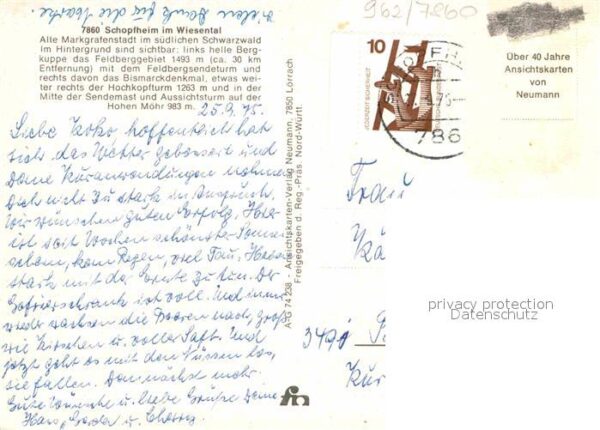 Vielen Dank für die Karte.
7860 Schopfheim im Wiesental
Alte Markgrafenstadt im südlichen Schwarzwald
Im Hintergrund sind sichtbar: links helle Berg-
kuppe das Feldberggebiet 1493 m (ca. 30 km
Entfernung) mit dem Feldbergsendeturm und
rechts davon das Bismarckdenkmal, etwas wei-
ter rechts der Hochkopfturm 1263 m und in der
Mitte der Sendemast und Aussichtsturm auf der
Hohen Möhr 983 m.
25.9.75.
Liebe hoffentlich hat
sich das Wetter gebessert und
Deine Kuranwendungen nehmen
Dich nicht zu stark in Anspruch.
Wir wünschen guten Erfolg. Hier
ist seit Wochen schönster Sonnen-
schein, kein Regen, viel Tau, Hans
stark mit der Ernte zu tun. Der
Gefrierschrank ist voll. Und immer
wieder wachsen die Beeren nach, groß
wie Kirschen u. voller Saft. Und
jetzt geht es mit den Nüssen los,
sie fallen. Demnächst mehr.
Gute Wünsche u. liebe Grüße Deine
Hans, u.
A-G 74 238 - Ansichtskarten-Verlag Neumann, 7850 Lörrach
Freigegeben d. Reg.-Präs. Nord-Württ.
962/7860
10
JEDERZEIT SICHERHEIT
786
Über 40 Jahre
Ansichtskarten
von
Neumann
Frau
Kä
privacy protection
Datenschutz
3490
Kur